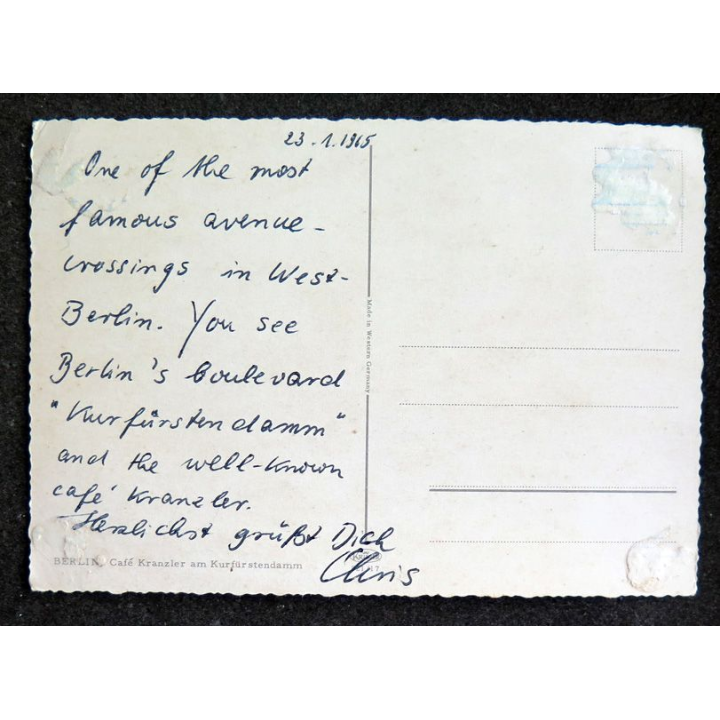 23.1.1965
One of the most
famous avenue-
crossings in West-
Berlin. You see
Berlin's boulevard
"Kurfürstendamm"
and the well-known
café Kranzler.
Herzlichst grüßt Dich
Chris
BERLIN, Café Kranzler am Kurfürstendamm
Made in Western Germany